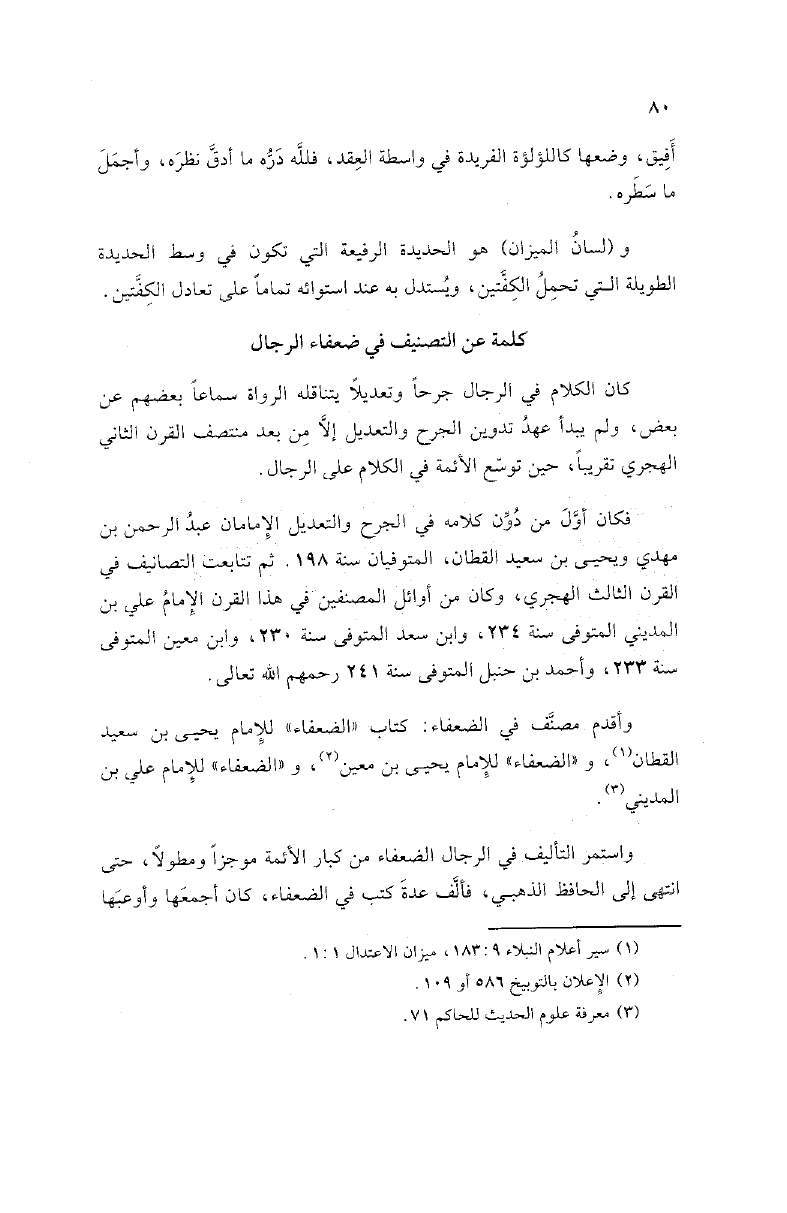 ٨٠
أَفِيق، وضعها كاللؤلؤة الفريدة في واسطة العِقد، فللَّه دَرُّه ما أدقَّ نظرَه، وأجمَلَ
ما سَطَره.
و (لسانُ الميزان) هو الحديدة الرفيعة التي تكون في وسط الحديدة
الطويلة التي تحمِلُ الكِفَّتين، ويُستدل به عند استوائه تماماً على تعادل الكِفَّتين.
كلمة عن التصنيف في ضعفاء الرجال
كان الكلام في الرجال جرحاً وتعديلاً يتناقله الرواة سماعاً بعضهم عن
بعض، ولم يبدأ عهدُ تدوين الجرح والتعديل إلاَّ مِن بعد منتصف القرن الثاني
الهجري تقريباً، حين توسّع الأئمة في الكلام على الرجال.
فكان أوَّلَ من دُوِّن كلامه في الجرح والتعديل الإِمامان عبدُ الرحمن بن
مهدي ويحيى بن سعيد القطان، المتوفيان سنة ١٩٨. ثم تتابعت التصانيف في
القرن الثالث الهجري، وكان من أوائل المصنفين في هذا القرن الإِمامُ علي بن
المديني المتوفى سنة ٢٣٤، وابن سعد المتوفى سنة ٢٣٠، وابن معين المتوفى
سنة ٢٣٣، وأحمد بن حنبل المتوفى سنة ٢٤١ رحمهم الله تعالى.
وأقدم مصنَّف في الضعفاء: كتاب «الضعفاء» للإِمام يحيى بن سعيد
القطان(١)، و «الضعفاء» للإِمام يحيى بن معين(٢)، و «الضعفاء» للإِمام علي بن
المديني(٣).
واستمر التأليف في الرجال الضعفاء من كبار الأئمة موجزاً ومطولاً، حتى
انتهى إلى الحافظ الذهبي، فألَّف عدةَ كتب في الضعفاء، كان أجمعَها وأوعبَها
(١) سير أعلام النبلاء ٩: ١٨٣، ميزان الاعتدال ١: ١.
(٢) الإِعلان بالتوبيخ ٥٨٦ أو ١٠٩.
(٣) معرفة علوم الحديث للحاكم ٧١.